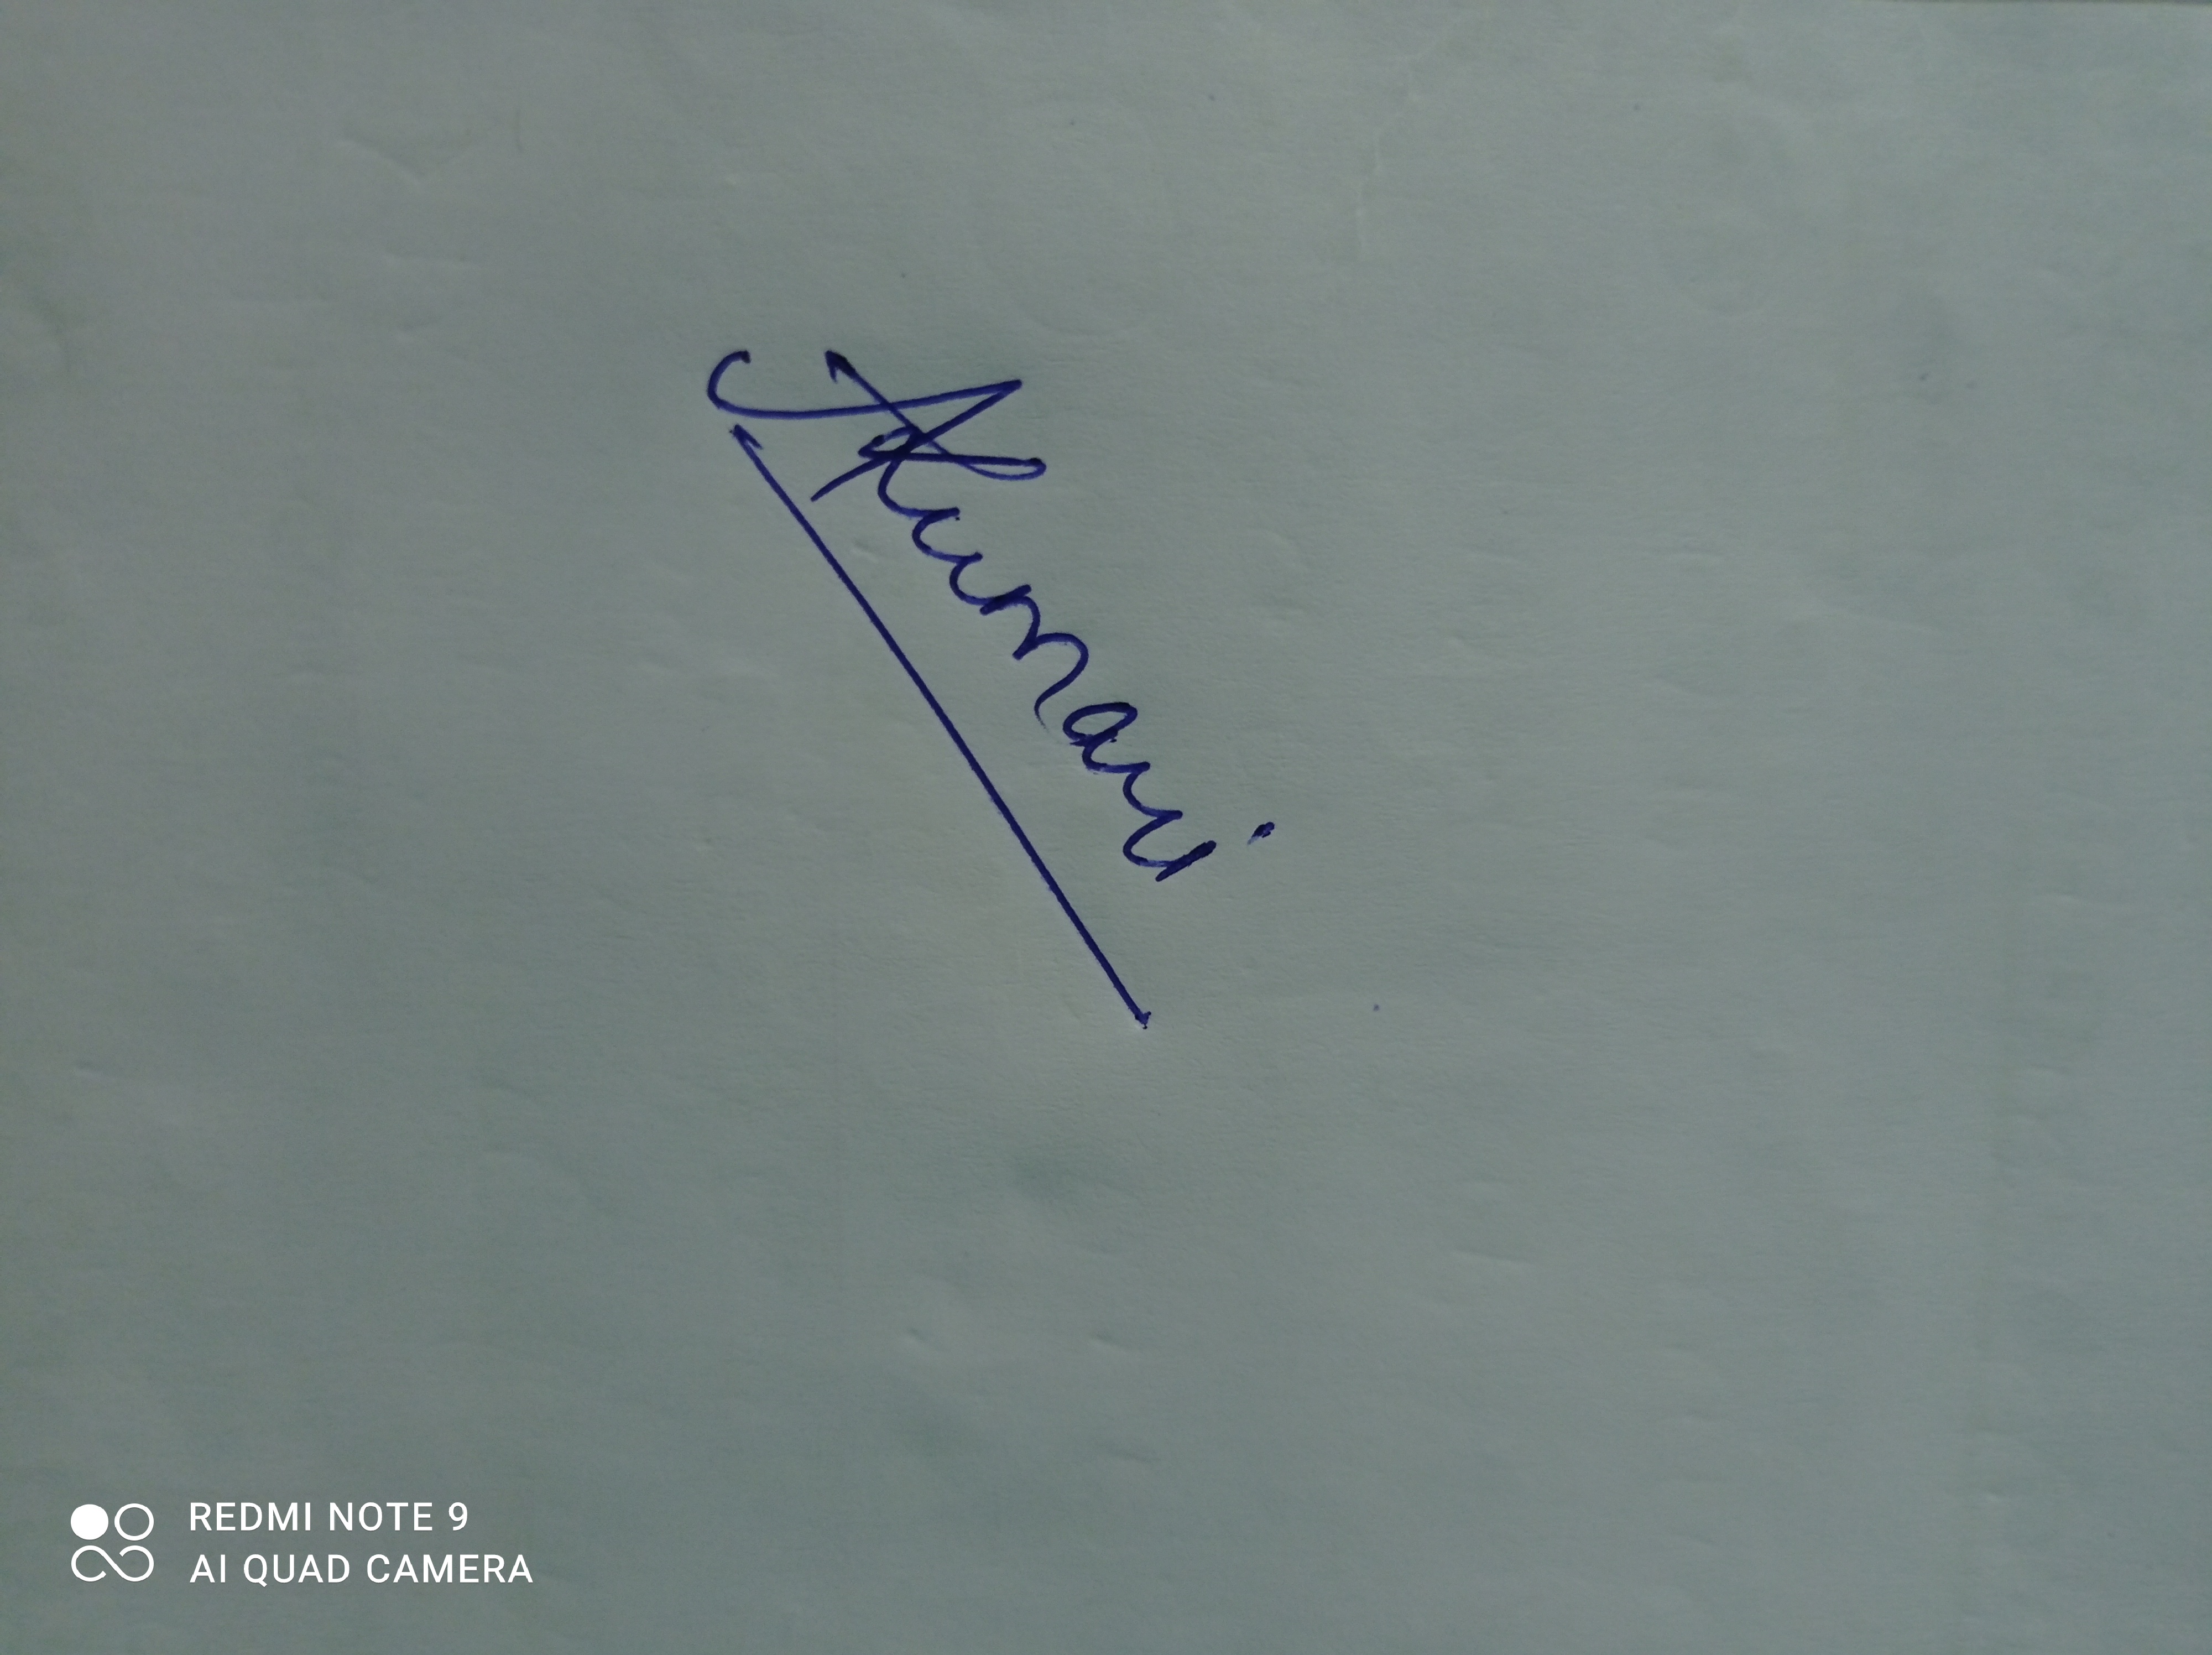 AKumari
REDMI NOTE 9
AI QUAD CAMERA